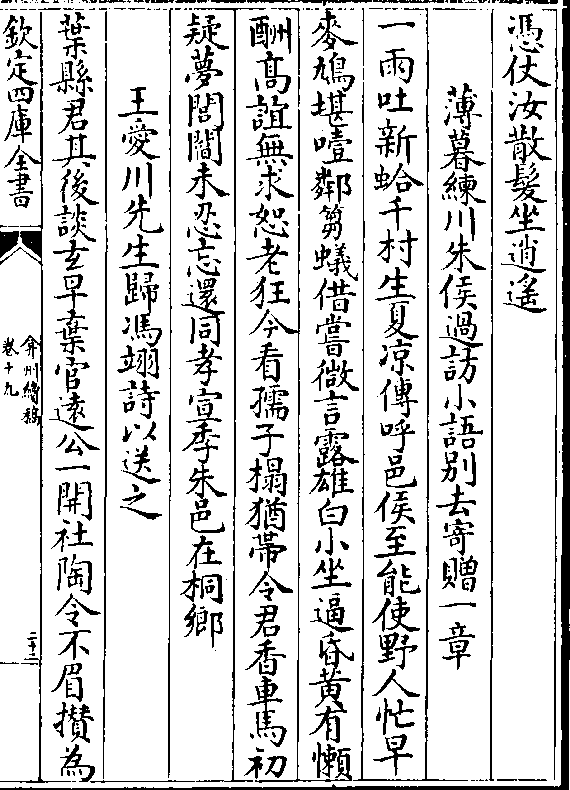 憑仗汝散髮坐逍遙
薄暮練川朱侯過訪小語别去寄贈一章
一雨吐新蛤千村生夏凉傳呼邑侯至能使野人忙早
麥鳩堪噎鄰芻蟻借嘗微言露雄白小坐逼昏黄有懶
酬高誼無求恕老狂今看孺子榻猶帶令君香車馬初
疑夢閭閻未忍忘還同孝宣季朱邑在桐鄉
王愛川先生歸馮翊詩以送之
葉縣君其後談玄早棄官遠公一開社陶令不眉攢為
欽定四庫全書
弇州續稿
卷十九
二十二